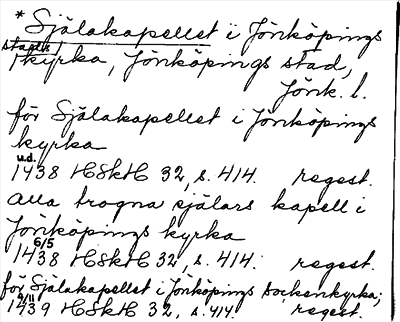 *Själakapellet i Jönköpings
stads
kyrka, Jönköpings stad,
Jönk. l.
för Själakapellet i Jönköpings
kyrka
u.d.
1438 HSkH 32, s. 414. regest.
alla trogna själars kapell i
Jönköpings kyrka
6/5
1438 HSkH 32, s. 414. regest.
för Själakapellet i Jönköpings sockenkyrka;
9/11
1439 HSkH 32, s. 414. regest.